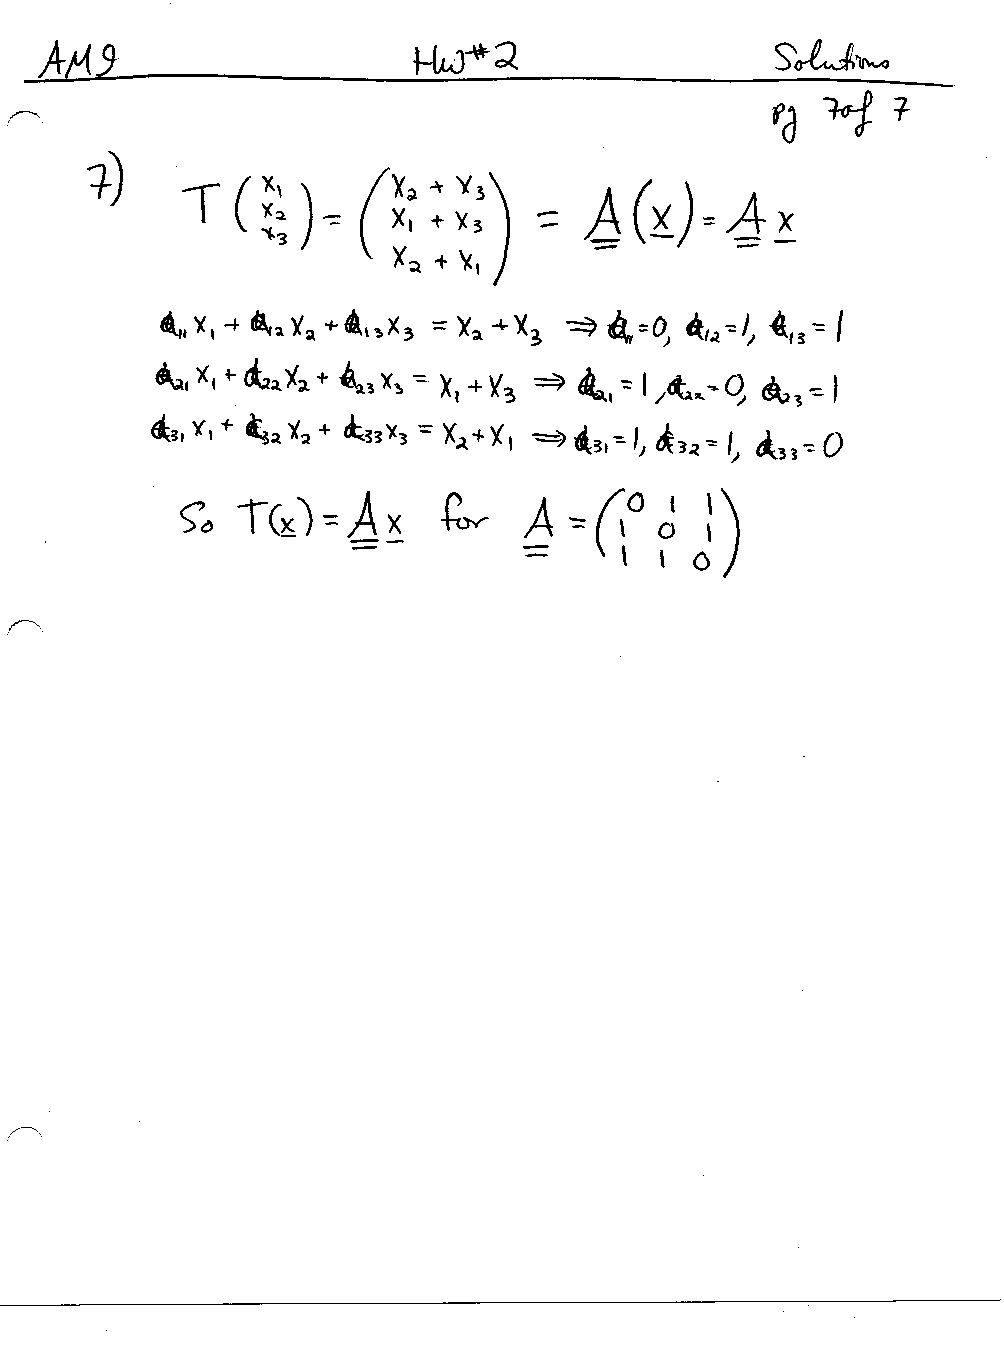 AM9 HW#2 Solutions
pg 7 of 7
7) T(x₁ x₂ x₃) = (x₂ + x₃ x₁ + x₃ x₂ + x₁) = A(x) = A x
a₁₁x₁ + a₁₂x₂ + a₁₃x₃ = x₂ + x₃ ⇒ a₁₁=0, a₁₂=1, a₁₃=1
a₂₁x₁ + a₂₂x₂ + a₂₃x₃ = x₁ + x₃ ⇒ a₂₁=1, a₂₂=0, a₂₃=1
a₃₁x₁ + a₃₂x₂ + a₃₃x₃ = x₂ + x₁ ⇒ a₃₁=1, a₃₂=1, a₃₃=0
So T(x) = A x for A = (0 1 1
1 0 1
1 1 0)